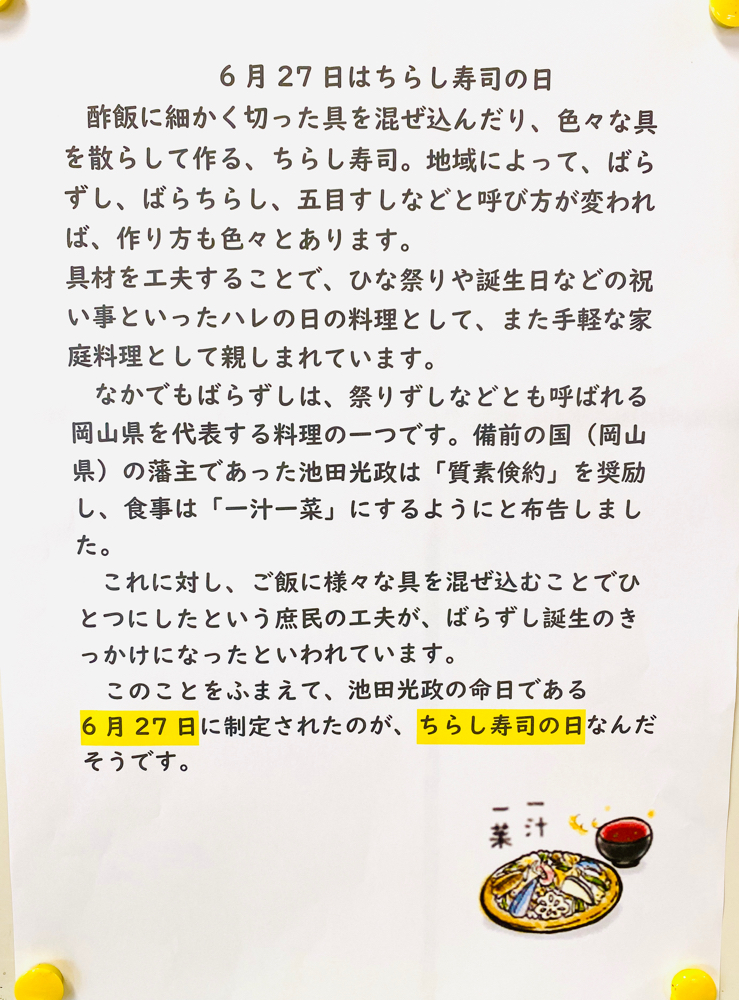 6月27日はちらし寿司の日
酢飯に細かく切った具を混ぜ込んだり、色々な具
を散らして作る、ちらし寿司。地域によって、ばら
ずし、ばらちらし、五目すしなどと呼び方が変われ
ば、作り方も色々とあります。
具材を工夫することで、ひな祭りや誕生日などの祝
い事といったハレの日の料理として、また手軽な家
庭料理として親しまれています。
なかでもばらずしは、祭りずしなどとも呼ばれる
岡山県を代表する料理の一つです。備前の国（岡山
県）の藩主であった池田光政は「質素倹約」を奨励
し、食事は「一汁一菜」にするようにと布告しまし
た。
これに対し、ご飯に様々な具を混ぜ込むことでひ
とつにしたという庶民の工夫が、ばらずし誕生のき
っかけになったといわれています。
このことをふまえて、池田光政の命日である
6月27日に制定されたのが、ちらし寿司の日なんだ
そうです。
一汁
一菜